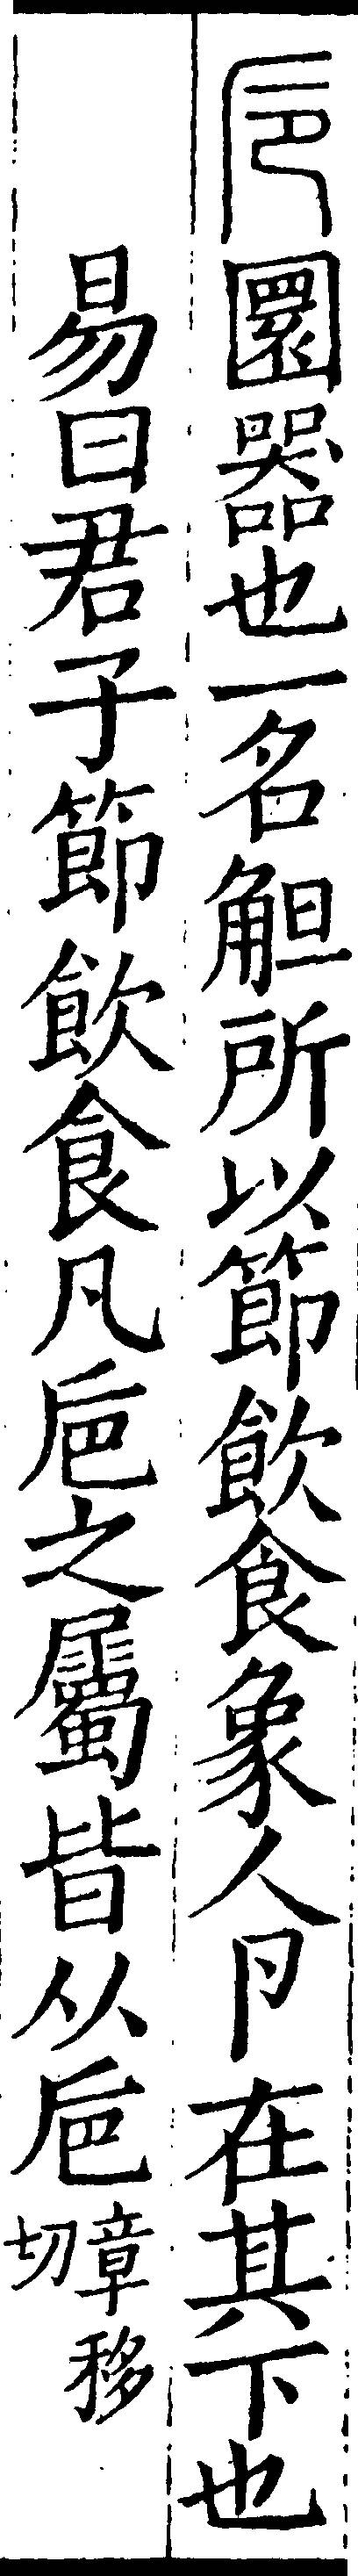 卮圜器也一名觛所以節飲食象人卪在其下也
易曰君子節飲食凡巵之屬皆从巵章移切